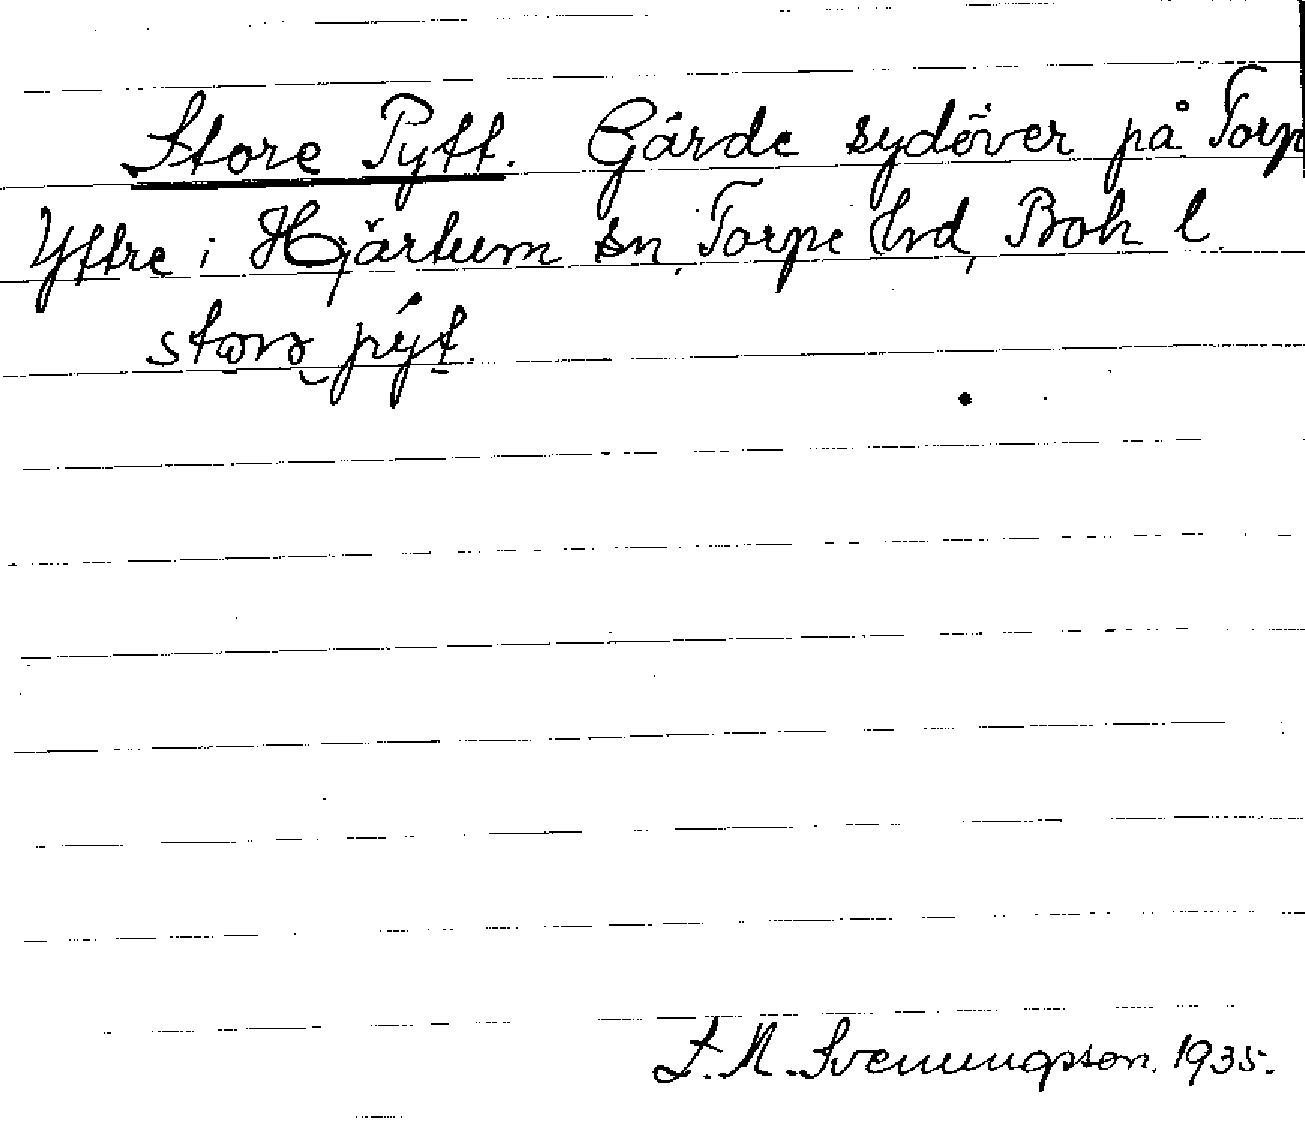 Store Pytt. Gärde sydöver på Torp
Yttre i Hjärtum sn, Torpe hrd, Boh l.
storə pyt.
S. M. Svenungsson. 1935.